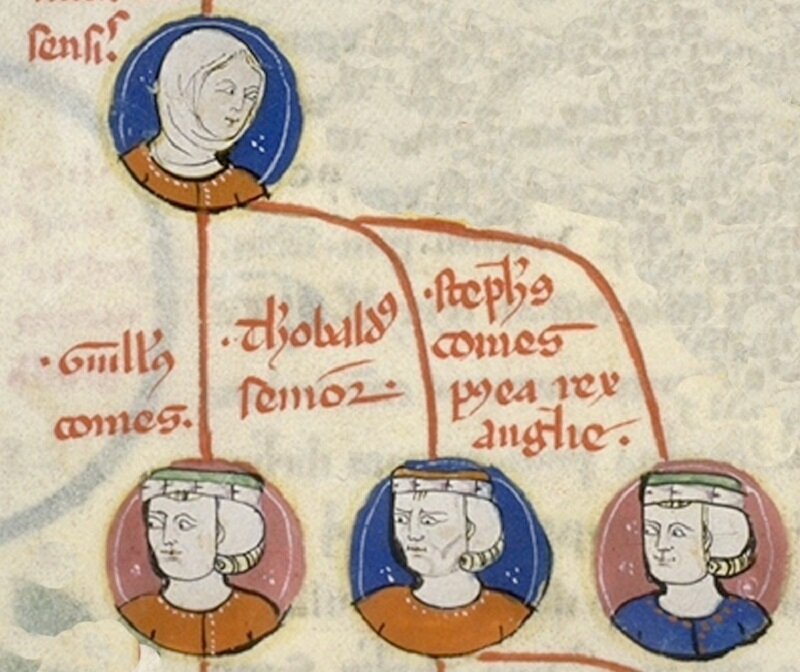 sensis
·Guill's
comes.
·Thobald'
senior·
·steph's
comes
p9ea rex
anglie.